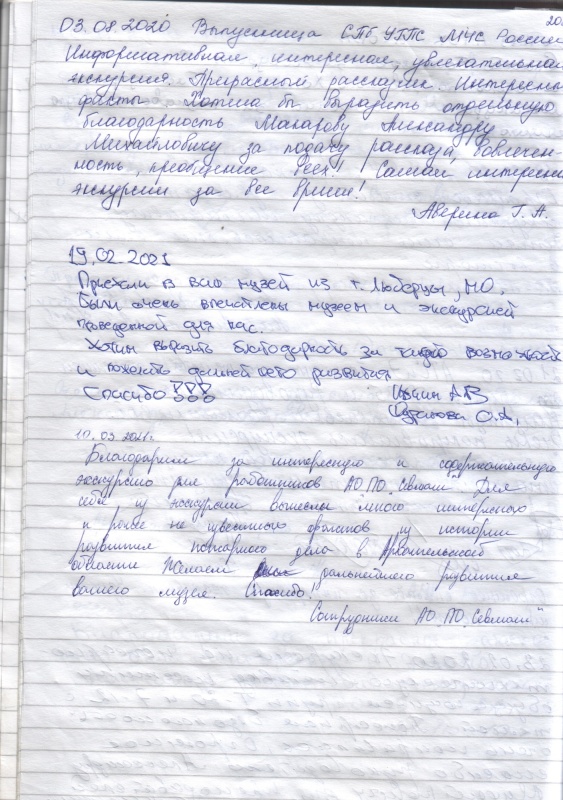 20
03.08.2020 Выпускница СПб УГПС МЧС России
Информативная, интересная, увлекательная
экскурсия. Прекрасный рассказчик. Интересные
факты. Хотела бы выразить отдельную
благодарность Макарову Александру
Михайловичу за подачу рассказа, вовлечен-
ность, просвещение всех! Самая интересная
экскурсия за все время!
Аверина Г. А.
19.02.2021
Приехали в ваш музей из г. Люберцы, МО.
Были очень впечатлены музеем и экскурсией
проведенной для нас.
Хотим выразить благодарность за такую возможность
и пожелать дальнейшего развития
Спасибо!!!
А В
О.А.
10.03.2021г.
Благодарим за интересную и содержательную
экскурсию для работников АО ПО "Севмаш". Для
себя из экскурсии вынесли много интересного
и ранее не известного фактов из истории
развития пожарного дела в Архангельской
области. Желаем дальнейшего развития
вашего музея. Спасибо!
Сотрудники АО ПО "Севмаш"